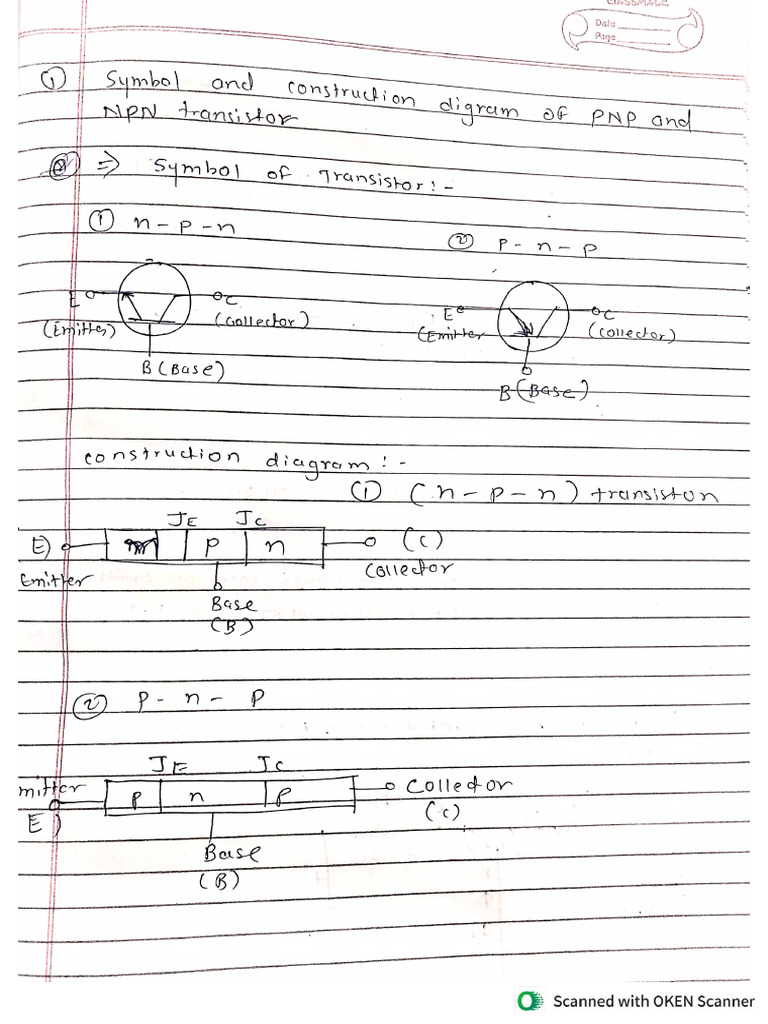 CLASSMATE
Date
Page
① Symbol and construction digram of PNP and
NPN transistor
⇒ Symbol of Transistor:-
① n-p-n
② P-n-P
E
C
(Emitter)
(Collector)
B (Base)
E
C
(Emitter
(Collector)
B (Base)
construction diagram:-
① (n-p-n) transistor
JE JC
E)
P n
(C)
Emitter
Collector
Base
(B)
② P-n-P
JE JC
mitter
P n P
Collector
E)
(C)
Base
(B)
Scanned with OKEN Scanner